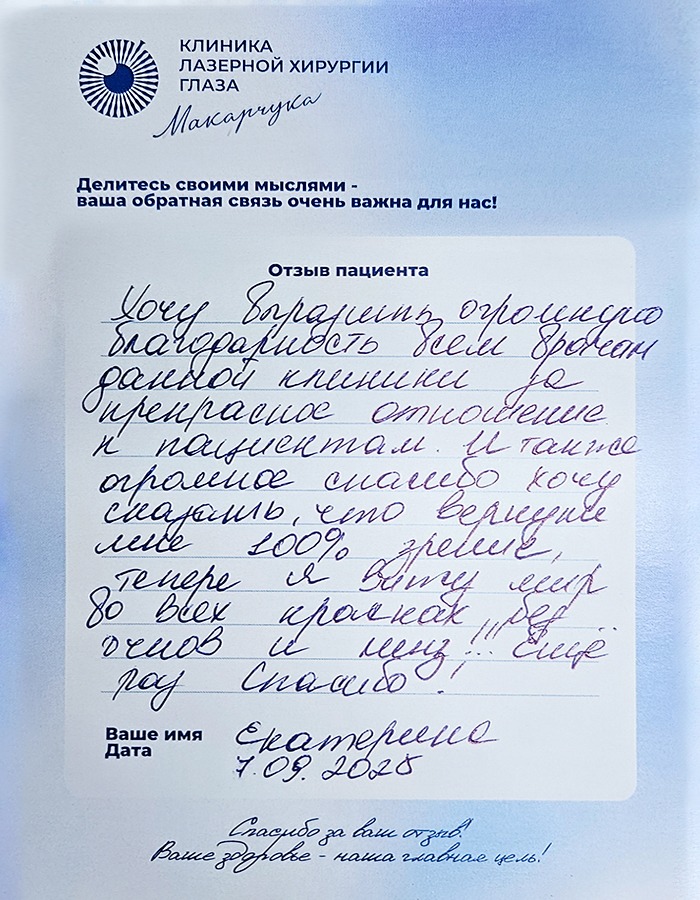 КЛИНИКА
ЛАЗЕРНОЙ ХИРУРГИИ
ГЛАЗА
Макарчука
Делитесь своими мыслями -
ваша обратная связь очень важна для нас!
Отзыв пациента
Хочу выразить огромную
благодарность всем врачам
данной клиники за
прекрасное отношение
к пациентам. И также
огромное спасибо хочу
сказать, что вернули
мне 100% зрение,
теперь я вижу мир
во всех красках, без
очков и линз!!! Ещё
раз Спасибо!
Ваше имя Екатерина
Дата 7.09.2025
Спасибо за ваш отзыв!
Ваше здоровье - наша главная цель!